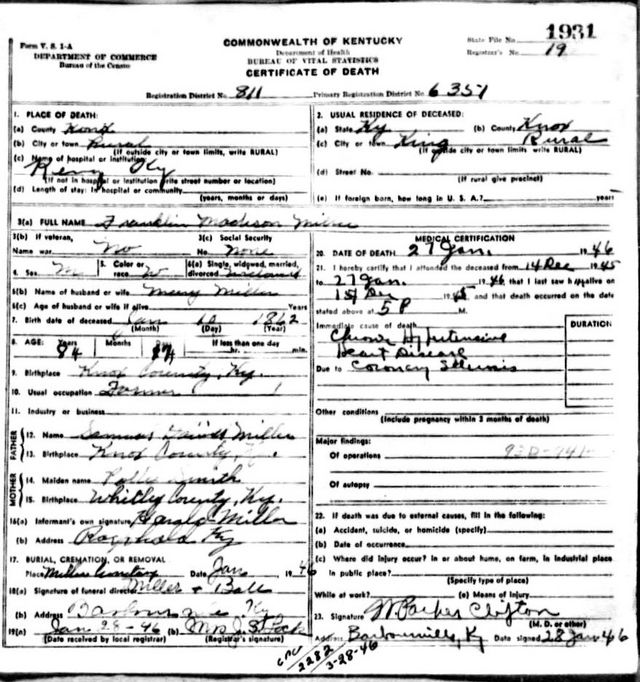 Form V. S. 1-A
DEPARTMENT OF COMMERCE
Bureau of the Census
COMMONWEALTH OF KENTUCKY
Department of Health
BUREAU OF VITAL STATISTICS
CERTIFICATE OF DEATH
State File No. 1931
Registrar's No. 19
Registration District No. 811
Primary Registration District No. 6351
1. PLACE OF DEATH:
(a) County Knox
(b) City or town Rural
(If outside city or town limits, write RURAL)
(c) Name of hospital or institution
(If not in hospital or institution write street number or location)
(d) Length of stay: In hospital or community
(years, months or days)
2. USUAL RESIDENCE OF DECEASED:
(a) State Ky (b) County Knox
(c) City or town King Rural
(If outside city or town limits, write RURAL)
(d) Street No.
(If rural give precinct)
(e) If foreign born, how long in U. S. A.? years
3(a) FULL NAME Franklin Madison
3(b) If veteran,
Name war No
3(c) Social Security
No. None
4. Sex M 5. Color or race W 6(a) Single, widowed, married, divorced
6(b) Name of husband or wife Miller
6(c) Age of husband or wife if alive Years
7. Birth date of deceased Jan 10 1862
(Month) (Day) (Year)
8. AGE: Years 84 Months Days 17 If less than one day
hr. min.
9. Birthplace Knox County, Ky.
10. Usual occupation Farmer
11. Industry or business
FATHER
12. Name Miller
13. Birthplace Knox County,
MOTHER
14. Maiden name Smith
15. Birthplace Whitley County, Ky.
16(a) Informant's own signature Harold Miller
(b) Address Ky
17. BURIAL, CREMATION, OR REMOVAL
Place Miller Cemetery Date Jan 1946
18(a) Signature of funeral director Miller + Ball
(b) Address Ky
19(a) Jan 28-46 (b) Mrs J.
(Date received by local registrar) (Registrar's signature)
MEDICAL CERTIFICATION
20. DATE OF DEATH 27 Jan. 1946
21. I hereby certify that I attended the deceased from 14 Dec 1945
to 27 Jan. 1946 that I last saw h alive on
Dec 1945 and that death occurred on the date
stated above at 5 P M.
Immediate cause of death DURATION
Chronic Hypertensive
Heart Disease
Due to Coronary
Other conditions
(Include pregnancy within 3 months of death)
Major findings:
Of operations
Of autopsy
22. If death was due to external causes, fill in the following:
(a) Accident, suicide, or homicide (specify)
(b) Date of occurrence
(c) Where did injury occur? In or about home, on farm, in industrial place
In public place?
(Specify type of place)
While at work? (e) Means of injury
23. Signature Parker Clifton
(M. D. or other)
Address Barbourville, Ky Date signed 28 Jan 46
2282
3-28-46